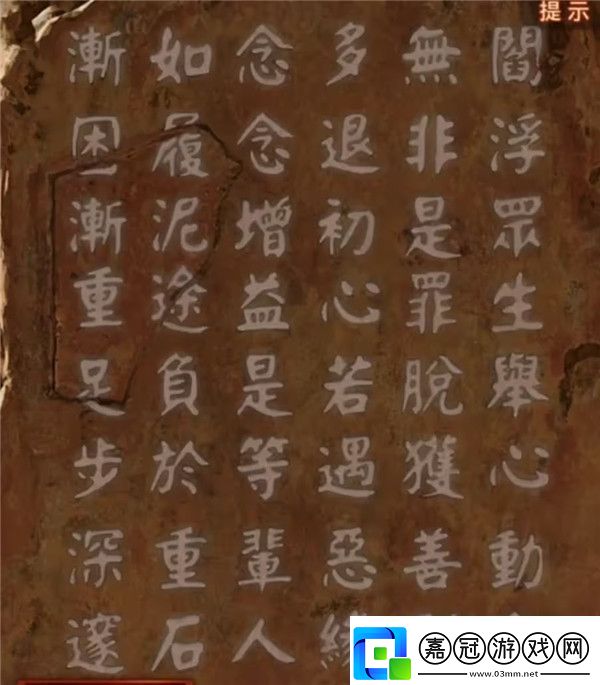 提示
閻浮眾生舉心動
無非是罪脫獲善
多退初心若遇惡
念念增益是等輩人
如履泥途負於重石
漸困漸重足步深邃
嘉冠游戏网
www.03mm.net